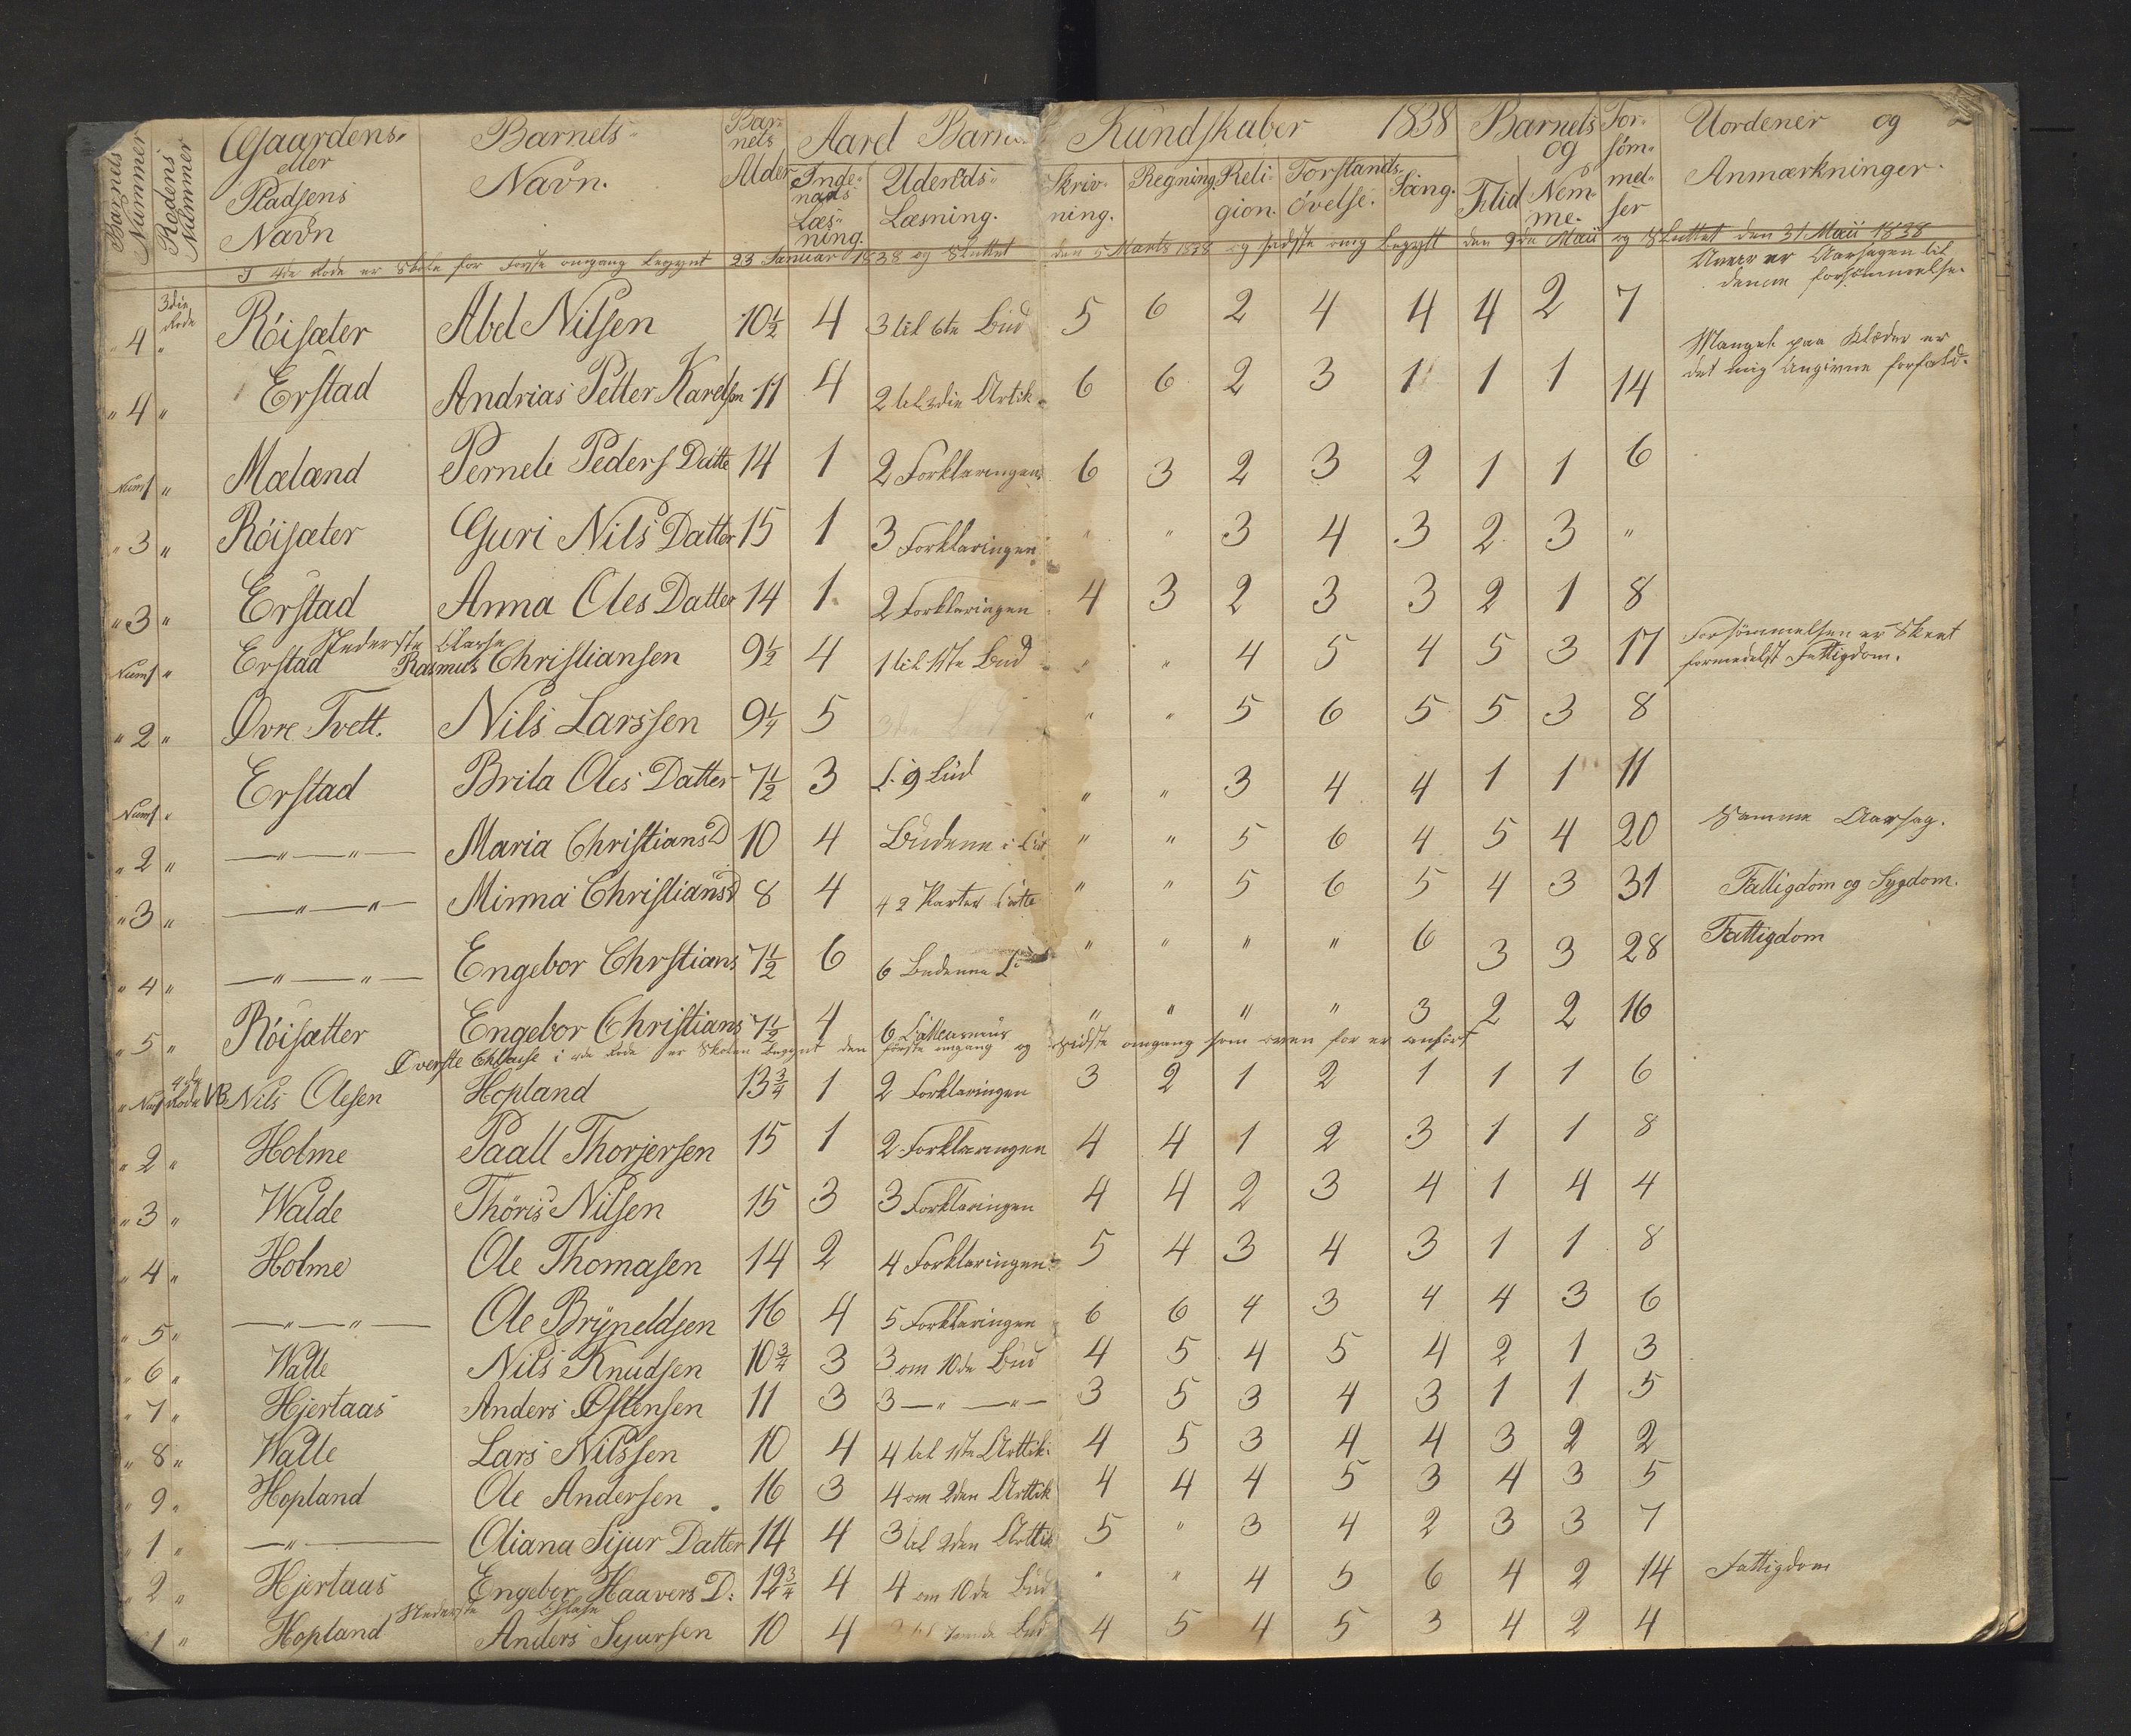 Barnets Nummer Rodens Nummer Gaardens eller Pladsens Navn Barnets Navn. Barnets Alder Aaret Barnets Kundskaber 1838 Barnets og Forsömmelser Uordener og Anmærkninger.
Indenads Læsning. Udenads Læsning. Skrivning. Regning Religion. Forstands övelse. Sang. Flid Nemme.
I 4de Rode er Skole for Forste omgang begynt 23 Januar 1838 og Sluttet den 5 Marts 1838 og sidste omg begyst den 9de Maii og Sluttet den 31 Maii 1838
" 4 3die Rode " Röisæter Abel Nilsen 10½ 4 3 til 6te Bud 5 6 2 4 4 4 2 7 er Aarsagen til denne forsömmelse.
" 4 " Erstad Andrias Petter Karelsen 11 4 2 til 3die Artik 6 6 2 3 1 1 1 14 Mangel paa Klæder er det mig Angivne forfald.
Num1 " Mæland Perneli Peders Datte 14 1 2 Forklaringen 6 3 2 3 2 1 1 6
" 3 " Röisæter Guri Nils Datter 15 1 3 Forklaringen " " 3 4 3 2 3 "
" 3 " Erstad Anna Oles Datter 14 1 2 Forklaringen 4 3 2 3 3 2 1 8
Nederste Classe
Num1 " Erstad Rasmus Christiansen 9½ 4 1 til 1ste Bud " " 4 5 4 5 3 17 Forsömmelsen er Skeet formedelst Fattigdom.
" 2 " Øvre Tvett. Nils Larssen 9¼ 5 " " 5 6 5 5 3 8
Num1 " Erstad Brita Oles Datter 7½ 3 L. 9 Bud " " 3 4 4 1 1 11
" 2 " —"—"— Maria Christians D 10 4 Budene i " " 5 6 4 5 4 20 Samme Aarsag.
" 3 " —"—"— Minna Christians D 8 4 4 2 Parter " " 5 6 5 4 3 31 Fattigdom og Sygdom.
" 4 " —"—"— Engebor Chrstians 7½ 6 6 Budenne " " " " 6 3 3 28 Fattigdom
" 5 " Röisætter Engebor Christians 7½ 4 6 " " " " 3 2 2 16
Øverste Chlasse i 4de Rode er Skolen begynt den förste omgang og sidste omgang som oven for er anført
" Nu1 4de Rode NB Nils Olesen Hopland 13¾ 1 2 Forklaringen 3 2 1 2 1 1 1 6
" 2 " Holme Paall Thorjersen 15 1 2 Forklaringen 4 4 1 2 3 1 1 8
" 3 " Walde Thöris Nilsen 15 3 3 Forklaringen 4 4 2 3 4 1 4 4
" 4 " Holme Ole Thomasen 14 2 4 Forklaringen 5 4 3 4 3 1 1 8
" 5 " —"—"— Ole Brÿneldsen 16 4 5 Forklaringen 6 6 4 3 4 4 3 6
" 6 " Walle Nils Knudsen 10¾ 3 3 om 10de Bud 4 5 4 5 4 2 1 3
" 7 " Hjertaas Anders Østensen 11 3 3 —"—"— 3 5 3 4 3 1 1 5
" 8 " Walle Lars Nilssen 10 4 4 til 1ste Arttik: 4 5 3 4 4 3 2 2
" 9 " Hopland Ole Andersen 16 3 4 om 2den Arttik 4 4 4 5 3 4 3 5
" 1 " —"— Oliana Sijur Datter 14 4 3 til 2den Arttik 5 " 3 4 2 3 3 7
" 2 " Hjertaas Engebor Haavers D: 12¾ 4 4 om 10de Bud " " 4 5 6 4 2 14 Fattigdom
Nederste Chlasse
" 1 " Hopland Anders Syursen 10 4 til Bud 4 5 4 5 3 4 2 4